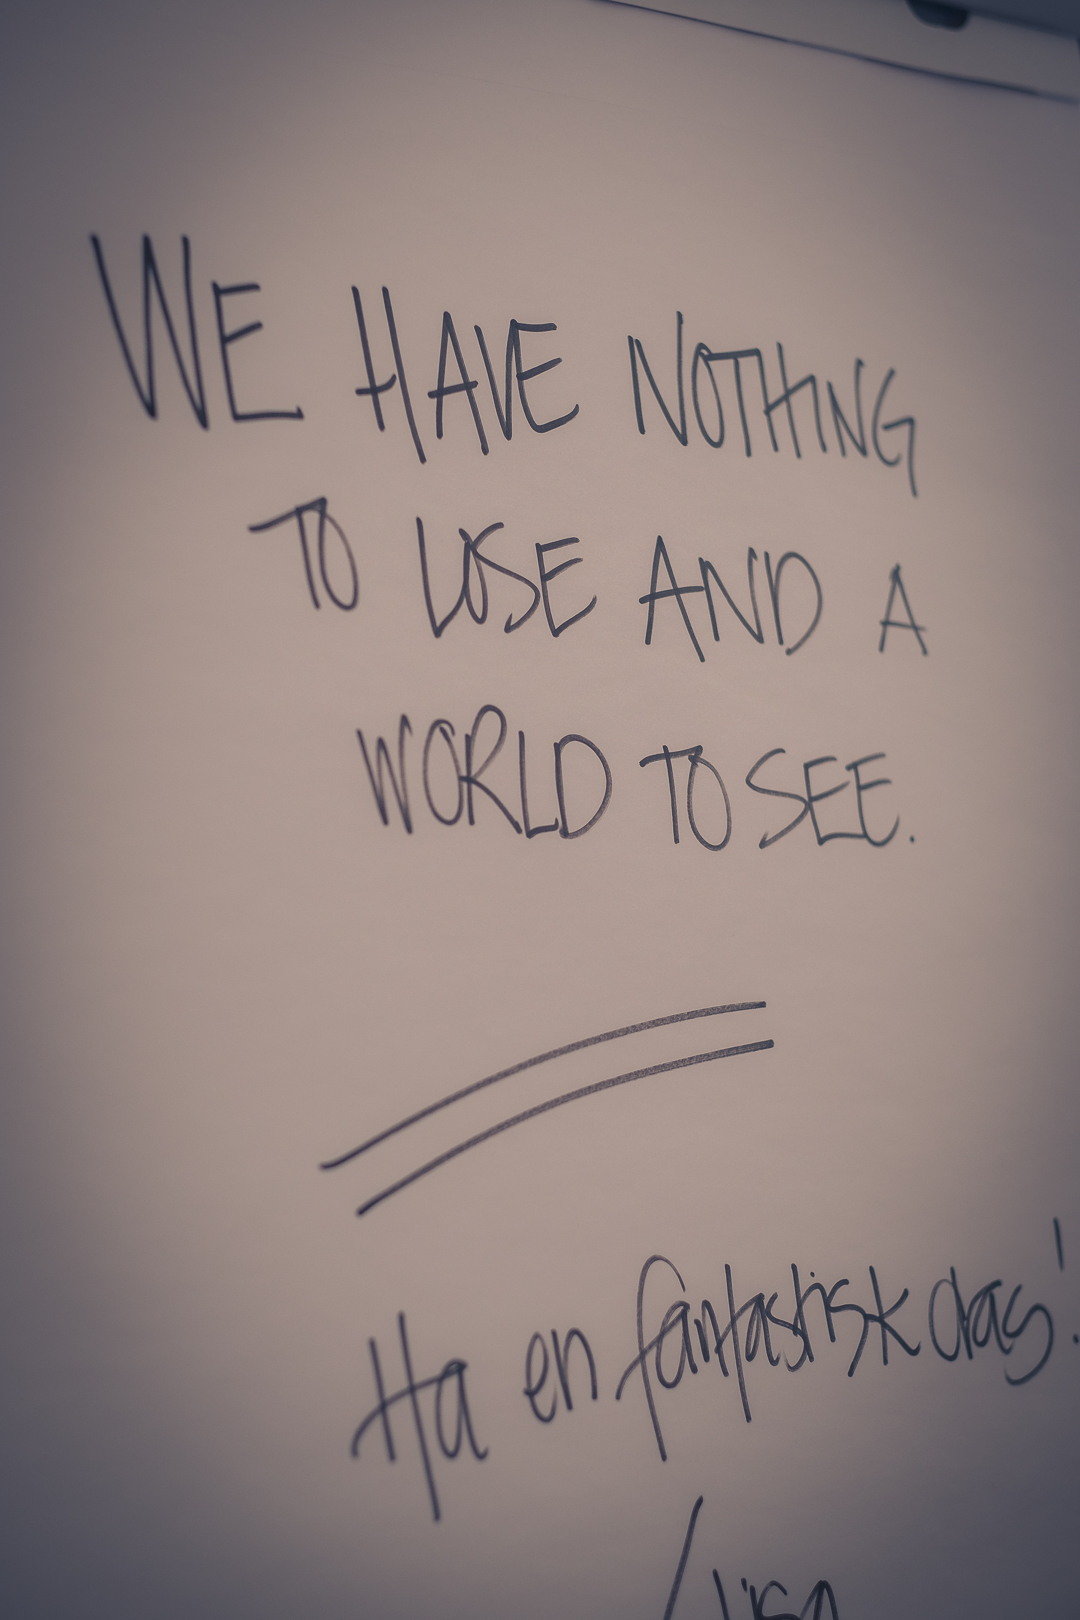 WE HAVE NOTHING
TO LOSE AND A
WORLD TO SEE.
Ha en fantastisk dag!